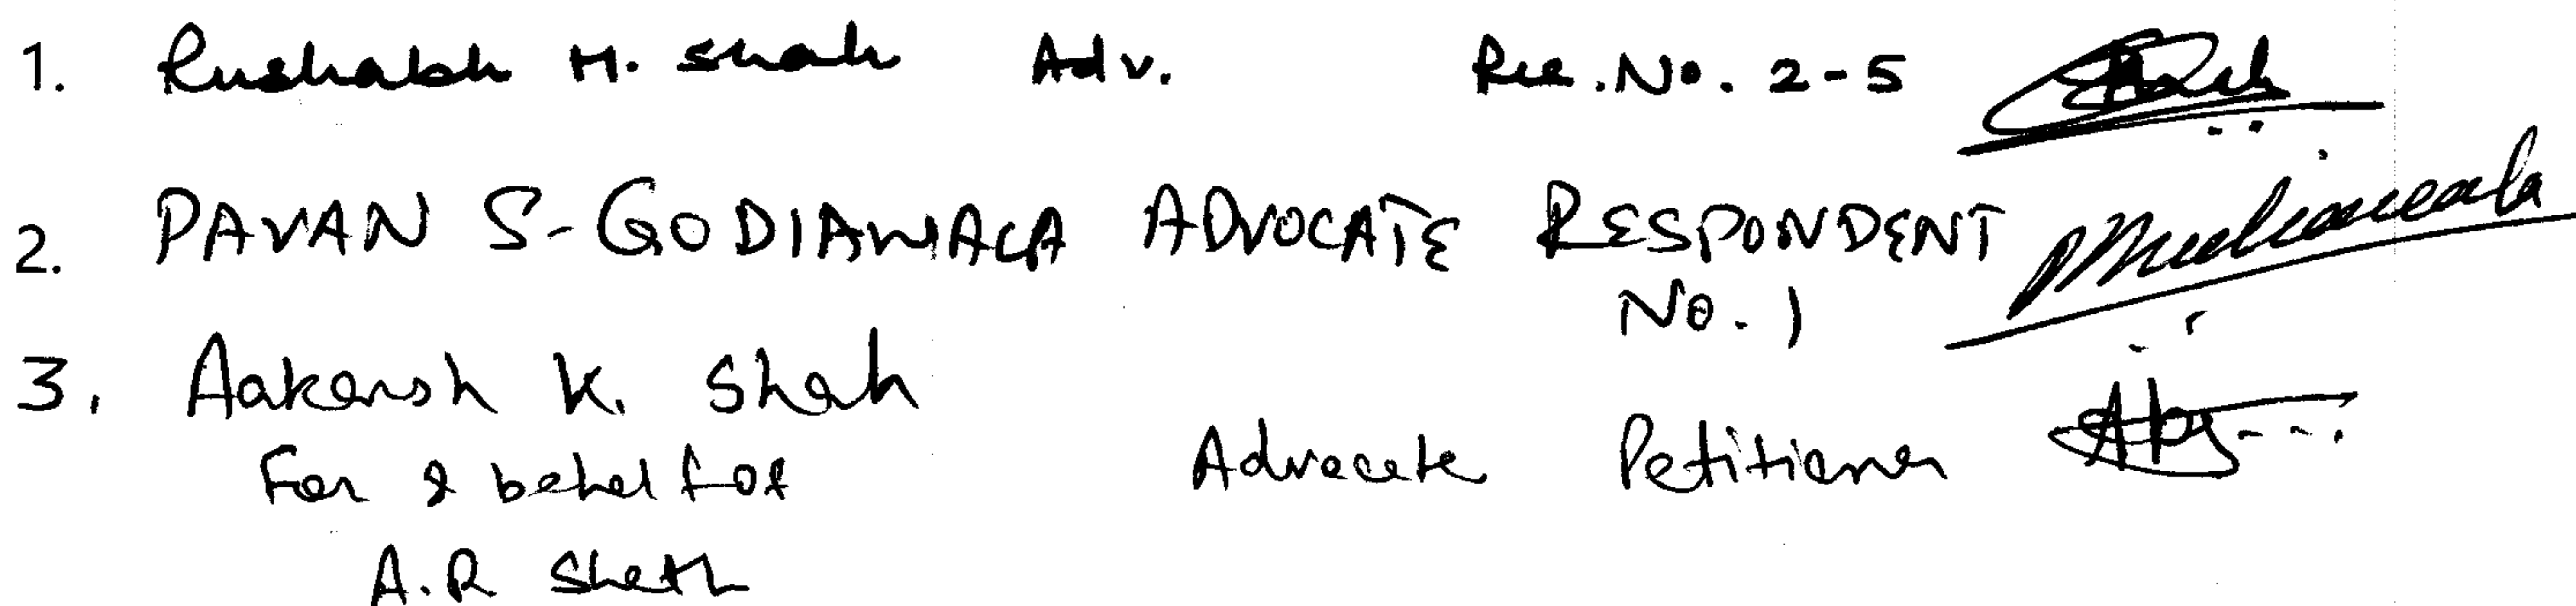 1. Rushabh H. Shah Adv. Res. No. 2-5
2. PAVAN S. GODIAWALA ADVOCATE RESPONDENT
No. 1
3. Aakarsh K. Shah
For & behalf of Advocate Petitioner
A.R Sheth